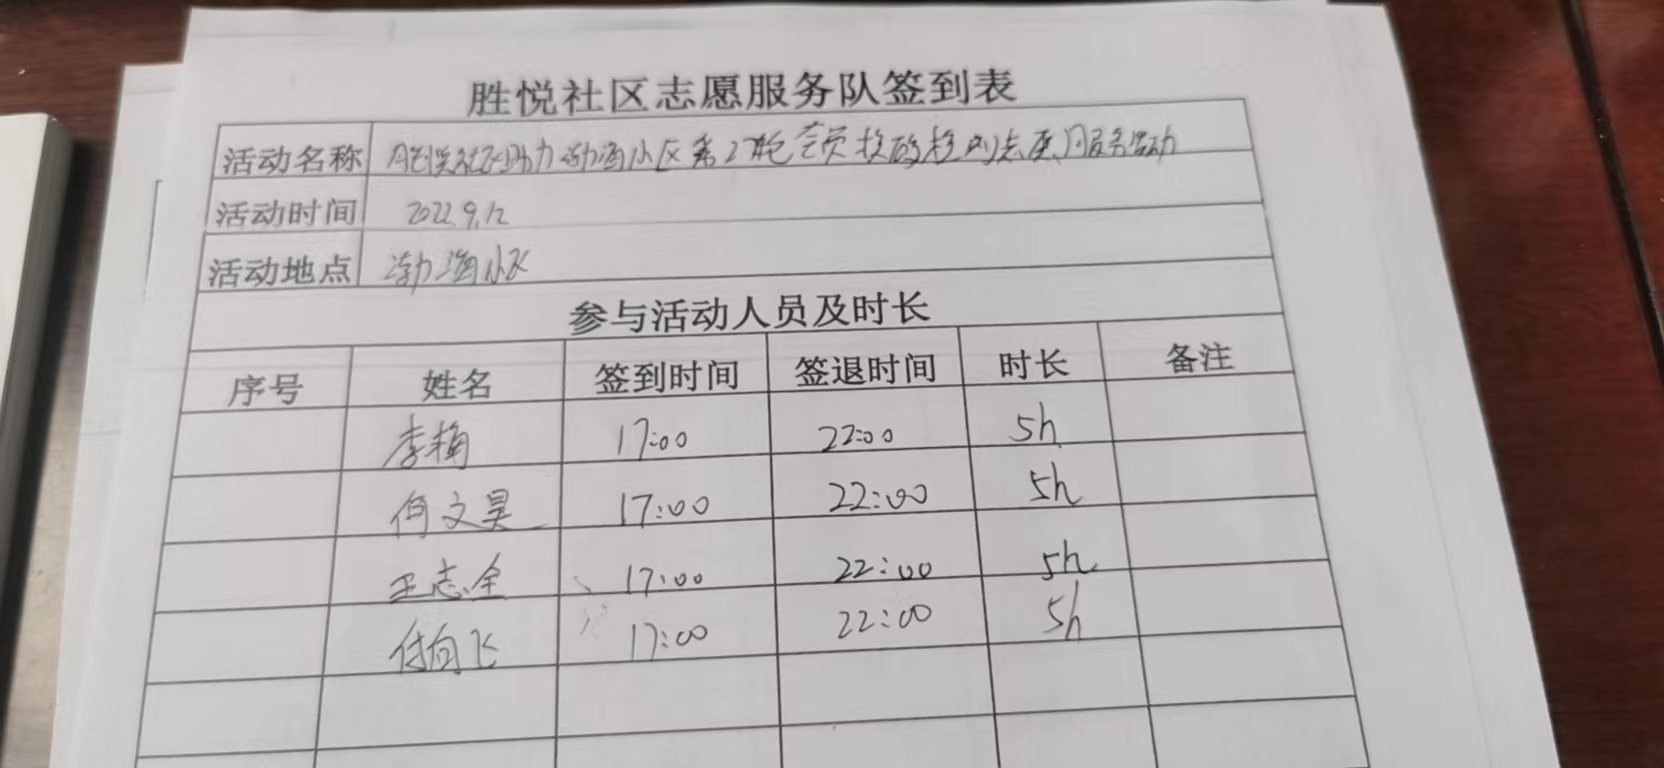 胜悦社区志愿服务队签到表
活动名称 胜悦社区助力渤海小区第2轮全员核酸检测志愿服务活动
活动时间 2022.9.12
活动地点 渤海小区
参与活动人员及时长
序号 姓名 签到时间 签退时间 时长 备注
李楠 17:00 22:00 5h
何文昊 17:00 22:00 5h
王志全 17:00 22:00 5h
付向飞 17:00 22:00 5h